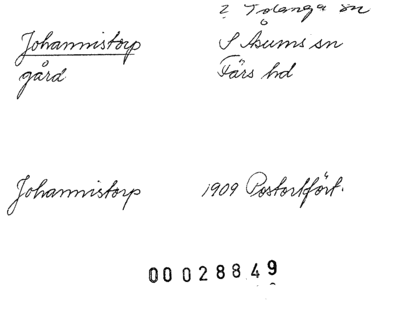 ? Tolånga sn
Johannistorp S Åsums sn
gård Färs hd
Johannistorp 1909 Postortfört.
00028849